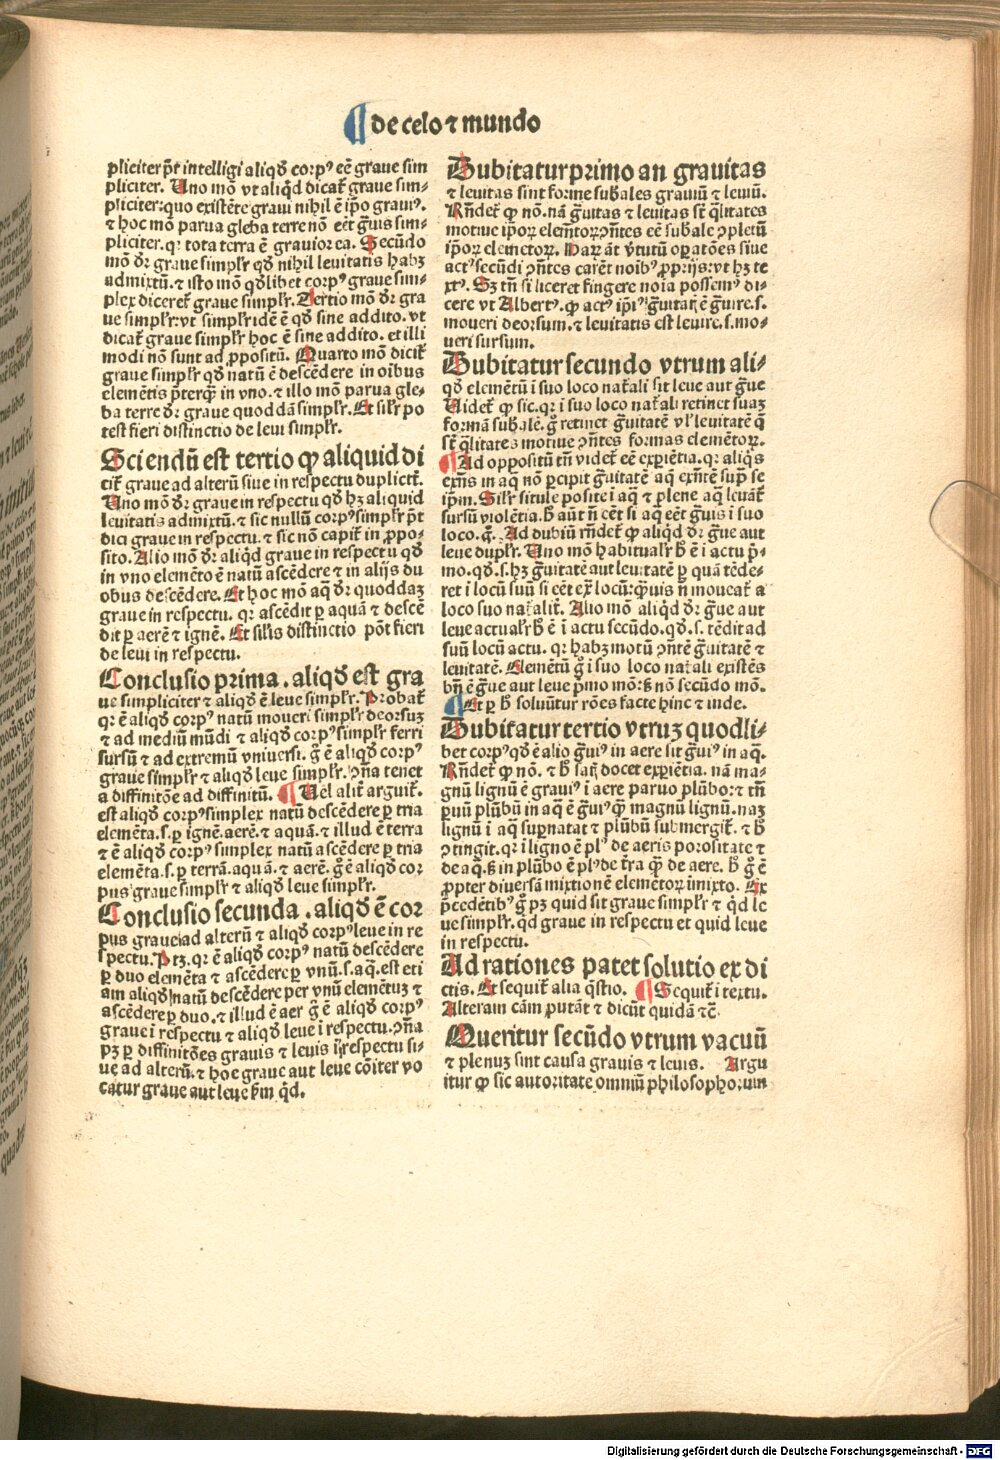 ¶ de celo ⁊ mundo
pliciter p̄t intelligi aliqđ corpꝰ eē graue sim
pliciter. Uno mō vt aliq̇d dicat̄ graue sim-
pliciter: quo existēte graui nihil ē ip̄o grauiꝰ.
⁊ hoc mō parua gleba terre nō eēt g̈uis sim-
pliciter. qꝛ tota terra ē grauior ea. Secūdo
mō dr̄ graue simplr̄ qđ nihil leuitatis habꝫ
admixtū. ⁊ isto mō qđlibet corpꝰ graue sim-
plex diceret̄ graue simplr̄. Tertio mō dr̄ gra
ue simplr̄: vt simplr̄ idē ē qđ sine addito. vt
dicat̄ graue simplr̄ hoc ē sine addito. et illi
modi nō sunt ad ꝓpositū. Quarto mō dicit̄
graue simplr̄ qđ natū ē descēdere in oibus
elemētis p̄terq̄ in vno. ⁊ illo mō parua gle-
ba terre dr̄ graue quoddā simplr̄. Et sil̄r po
test fieri distinctio de leui simplr̄.
Sciendū est tertio ꝙ aliquid di
cit̄ graue ad alterū siue in respectu duplict̄.
Uno mō dr̄ graue in respectu qđ hꝫ aliquid
leuitatis admixtū. ⁊ sic nullū corpꝰ simplr̄ p̄t
dici graue in respectu. ⁊ sic nō capit̄ in ꝓpo-
sito. Alio mō dr̄ aliq̇d graue in respectu qđ
in vno elemēto ē natū ascēdere ⁊ in alijs du
obus descēdere. Et hoc mō aq̄ dr̄ quoddaꝫ
graue in respectu. qꝛ ascēdit ꝑ aquā ⁊ descē
dit ꝑ aerē ⁊ ignē. Et sil̄is distinctio pōt fieri
de leui in respectu.
Conclusio prima. aliqđ est gra
ue simpliciter ⁊ aliqđ ē leue simplr̄. Probat̄
qꝛ ē aliqđ corpꝰ natū moueri simplr̄ deorsuꝫ
⁊ ad mediū mūdi ⁊ aliqđ corpꝰ simplr̄ ferri
sursū ⁊ ad extremū vniuersi. g̊ ē aliqđ corpꝰ
graue simplr̄ ⁊ aliqđ leue simplr̄. ꝯn̄a tenet
a diffinitōe ad diffinitū. ¶ Uel alit̄ arguit̄.
est aliqđ corpꝰ simplex natū descēdere ꝑ tria
elemēta. s. ꝑ ignē. aerē. ⁊ aquā. ⁊ illud ē terra
⁊ ē aliqđ corpꝰ simplex natū ascēdere ꝑ tria
elemēta. s. ꝑ terrā. aquā. ⁊ aerē. g̊ ē aliqđ cor
pus graue simplr̄ ⁊ aliqđ leue simplr̄.
Conclusio secunda. aliqđ ē cor
pus graue ad alterū ⁊ aliqđ corpꝰ leue in re
spectu. Ptꝫ. qꝛ ē aliqđ corpꝰ natū descēdere
ꝑ duo elemēta ⁊ ascēdere ꝑ vnū. s. aq̄. est eti
am aliqđ natū descēdere per vnū elemētuꝫ ⁊
ascēdere ꝑ duo. ⁊ illud ē aer g̊ ē aliqđ corpꝰ
graue ī respectu ⁊ aliqđ leue ī respectu. ꝯn̄a
pꝫ ꝑ diffinitōes grauis ⁊ leuis ī respectu si-
ue ad alterū. ⁊ hoc graue aut leue cōiter vo
catur graue aut leue ẜm qd.
Dubitatur primo an grauitas
⁊ leuitas sint forme sub̄ales grauiū ⁊ leuiū.
Rn̄det̄ ꝙ nō. nā g̈uitas ⁊ leuitas st̄ q̄litates
motiue ip̄oꝝ elem̄toꝝ ꝯn̄tes eē sub̄ale ꝯpletū
ip̄oꝝ elemētoꝝ. Harꝝ āt v̄tutū oꝑatōes siue
actꝰ secūdi ꝯn̄tes carēt noībꝰ ꝓprijs: vt hꝫ te
xtꝰ. Sꝫ tn̄ si liceret fingere noīa possemꝰ di-
cere vt Albertꝰ. ꝙ actꝰ ip̄iꝰ g̈uitat̄ ē g̈uire. s.
moueri deorsum. ⁊ leuitatis est leuire. s. mo-
ueri sursum.
Dubitatur secundo vtrum ali-
qđ elemētū ī suo loco nat̄ali sit leue aut g̈ue
Uidet̄ ꝙ sic. qꝛ ī suo loco nat̄ali retinet suaꝫ
formā sub̄alē. g̊ retinet g̈uitatē vl̓ leuitatē q̄
st̄ q̄litates motiue ꝯn̄tes formas elemētoꝝ.
¶ Ad oppositū tn̄ videt̄ eē exꝑiētia. qꝛ aliq̇s
exn̄s in aq̄ nō ꝑcipit g̈uitatē aq̄ exn̄tē suꝑ se
ip̄m. Sil̄r situle posite ī aq̄ ⁊ plene aq̄ leuāt̄
sursū violētia. h̄ aūt n̄ eēt si aq̄ eēt g̈uis ī suo
loco. g̊. Ad dubiū rn̄det̄ ꝙ aliq̇d dr̄ g̈ue aut
leue duplr̄. Uno mō habitualr̄ h̄ ē ī actu p̄-
mo. qđ. s. hꝫ g̈uitatē aut leuitatē ꝑ quā tēde-
ret ī locū suū si eēt ex̄ locū: q̄uis n̄ moueat̄ a
loco suo nat̄alit̄. Alio mō aliq̇d dr̄ g̈ue aut
leue actualr̄ h̄ ē ī actu secūdo. qđ. s. tēdit ad
suū locū actu. qꝛ habꝫ motū ꝯn̄tē g̈uitatē ⁊
leuitatē. Elemētū g̊ ī suo loco nat̄ali existēs
bn̄ ē g̈ue aut leue p̄mo mō: sꝫ nō secūdo mō.
¶ Et ꝑ h̄ soluūtur rōes facte hinc ⁊ inde.
Dubitatur tertio vtruꝫ quodli-
bet corpꝰ qđ ē alio g̈uiꝰ in aere sit g̈uiꝰ in aq̄.
Rn̄det̄ ꝙ nō. ⁊ h̄ satꝭ docet exꝑiētia. nā ma-
gnū lignū ē grauiꝰ ī aere paruo plūbo: ⁊ tn̄
paruū plūbū in aq̄ ē g̈uiꝰ q̄ magnū lignū. naꝫ
lignū ī aq̄ suꝑnatat ⁊ plūbū submergit̄. ⁊ h̄
ꝯtingit. qꝛ ī ligno ē plꝰ de aeris porositate ⁊
de aq̄. sꝫ in plūbo ē plꝰ de t̄ra q̄ de aere. h̄ g̊ ē
ꝓpter diuersā mixtionē elemētoꝝ ī mixto. Ex
p̄cedētibꝰ g̊ pꝫ quid sit graue simplr̄ ⁊ q̇d le
ue simplr̄. q̇d graue in respectu et quid leue
in respectu.
Ad rationes patet solutio ex di
ctis. Et sequit̄ alia q̄stio. ¶ Sequit̄ ī textu.
Alteram cām putāt̄ ⁊ dicūt quidā ⁊c̄
Queritur secūdo vtrum vacuū
⁊ plenuꝫ sint causa grauis ⁊ leuis. Argu
itur ꝙ sic autoritate omniū philosophorum
Digitalisierung gefördert durch die Deutsche Forschungsgemeinschaft - DFG